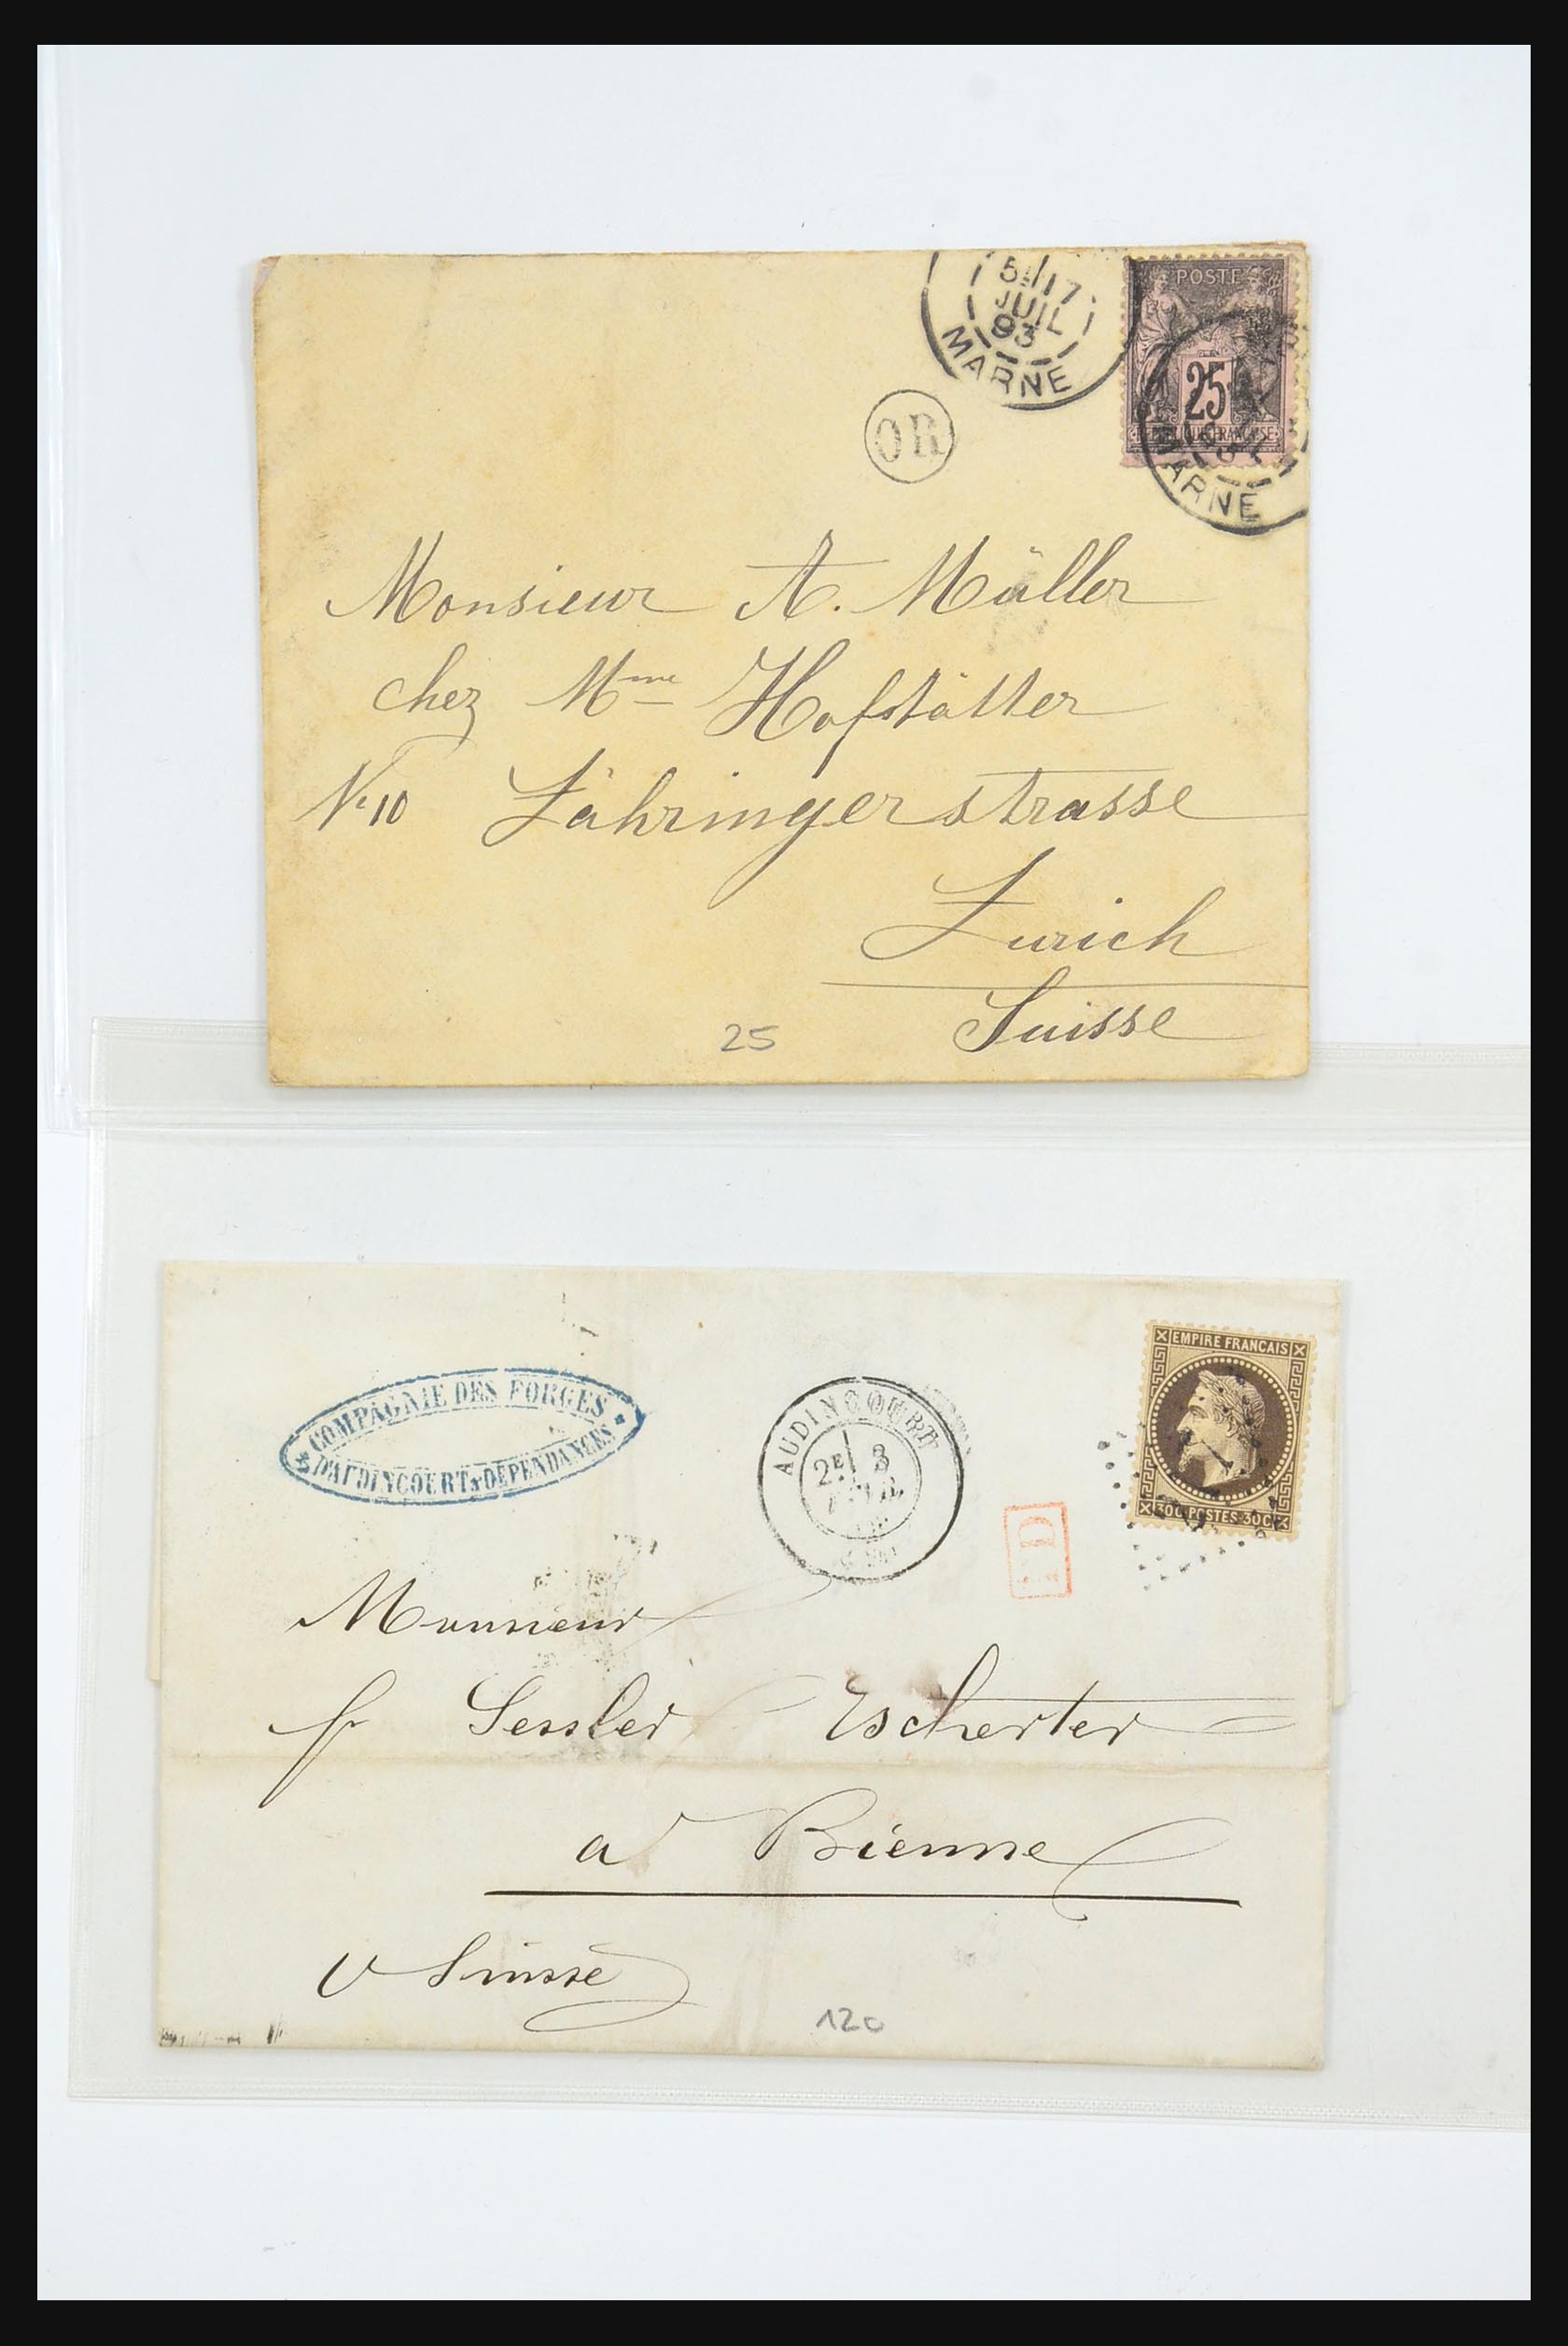 5E 17
JUIL
93
MARNE
POSTE
25
MARNE
OR
Monsieur A. Müller
chez Mme Hofstätter
No 10 Zähringerstrasse
Zurich
Suisse
25
COMPAGNIE DES FORGES
D'AUDINCOURT & DÉPENDANCES
AUDINCOURT
2E 3
EMPIRE FRANCAIS
30C POSTES 30C
Monsieur
fr Sessler Escherter
a Bienne
Suisse
120